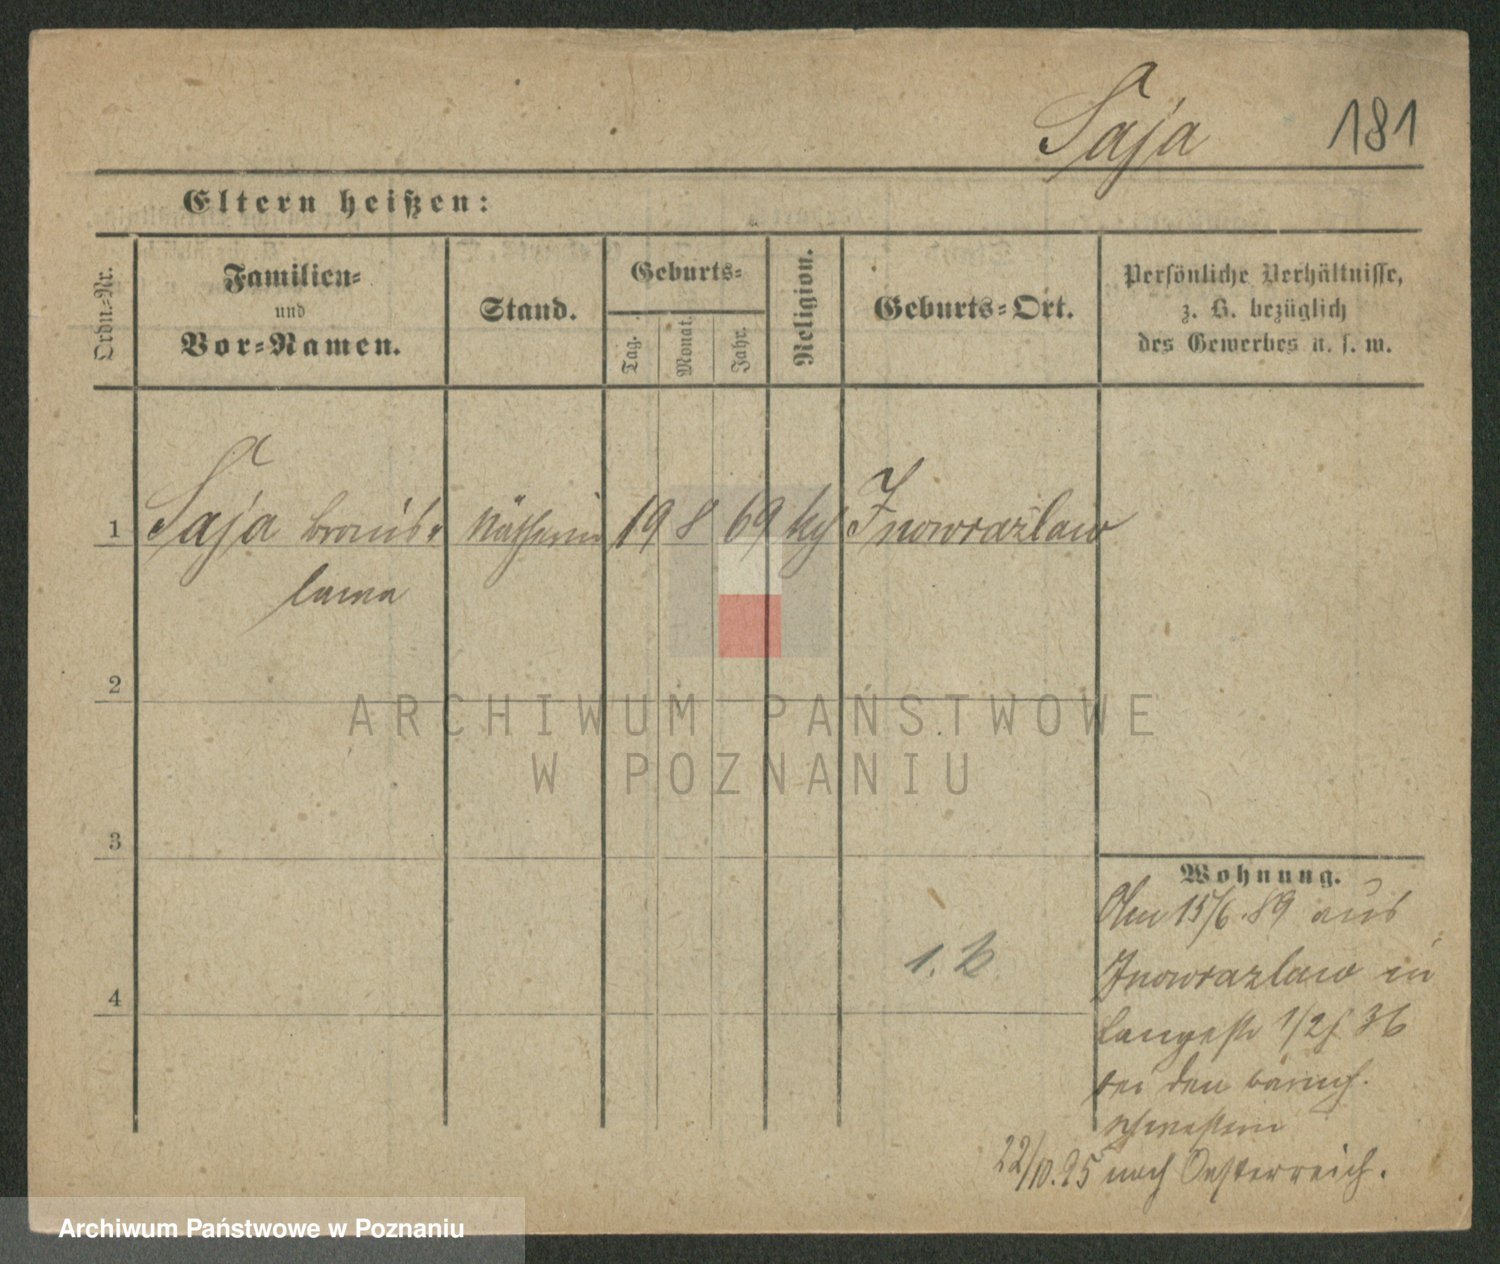 Saja 181
Eltern heißen:
Ordn.-Nr.
Familien-
und
Vor-Namen.
Stand.
Geburts-
Tag.
Monat.
Jahr.
Religion.
Geburts-Ort.
Persönliche Verhältnisse,
z. B. bezüglich
des Gewerbes u. s. w.
1 Saja Bronis- Nätherin 19 8 69 kth Inowrazlaw
lawa
2
3
4
Wohnung.
Am 15/6. 89 aus
Inowrazlaw in
Langestr 1/2 36
bei den barmh.
Schwestern
22/10. 95 nach Oesterreich.
ARCHIWUM PAŃSTWOWE
W POZNANIU
Archiwum Państwowe w Poznaniu